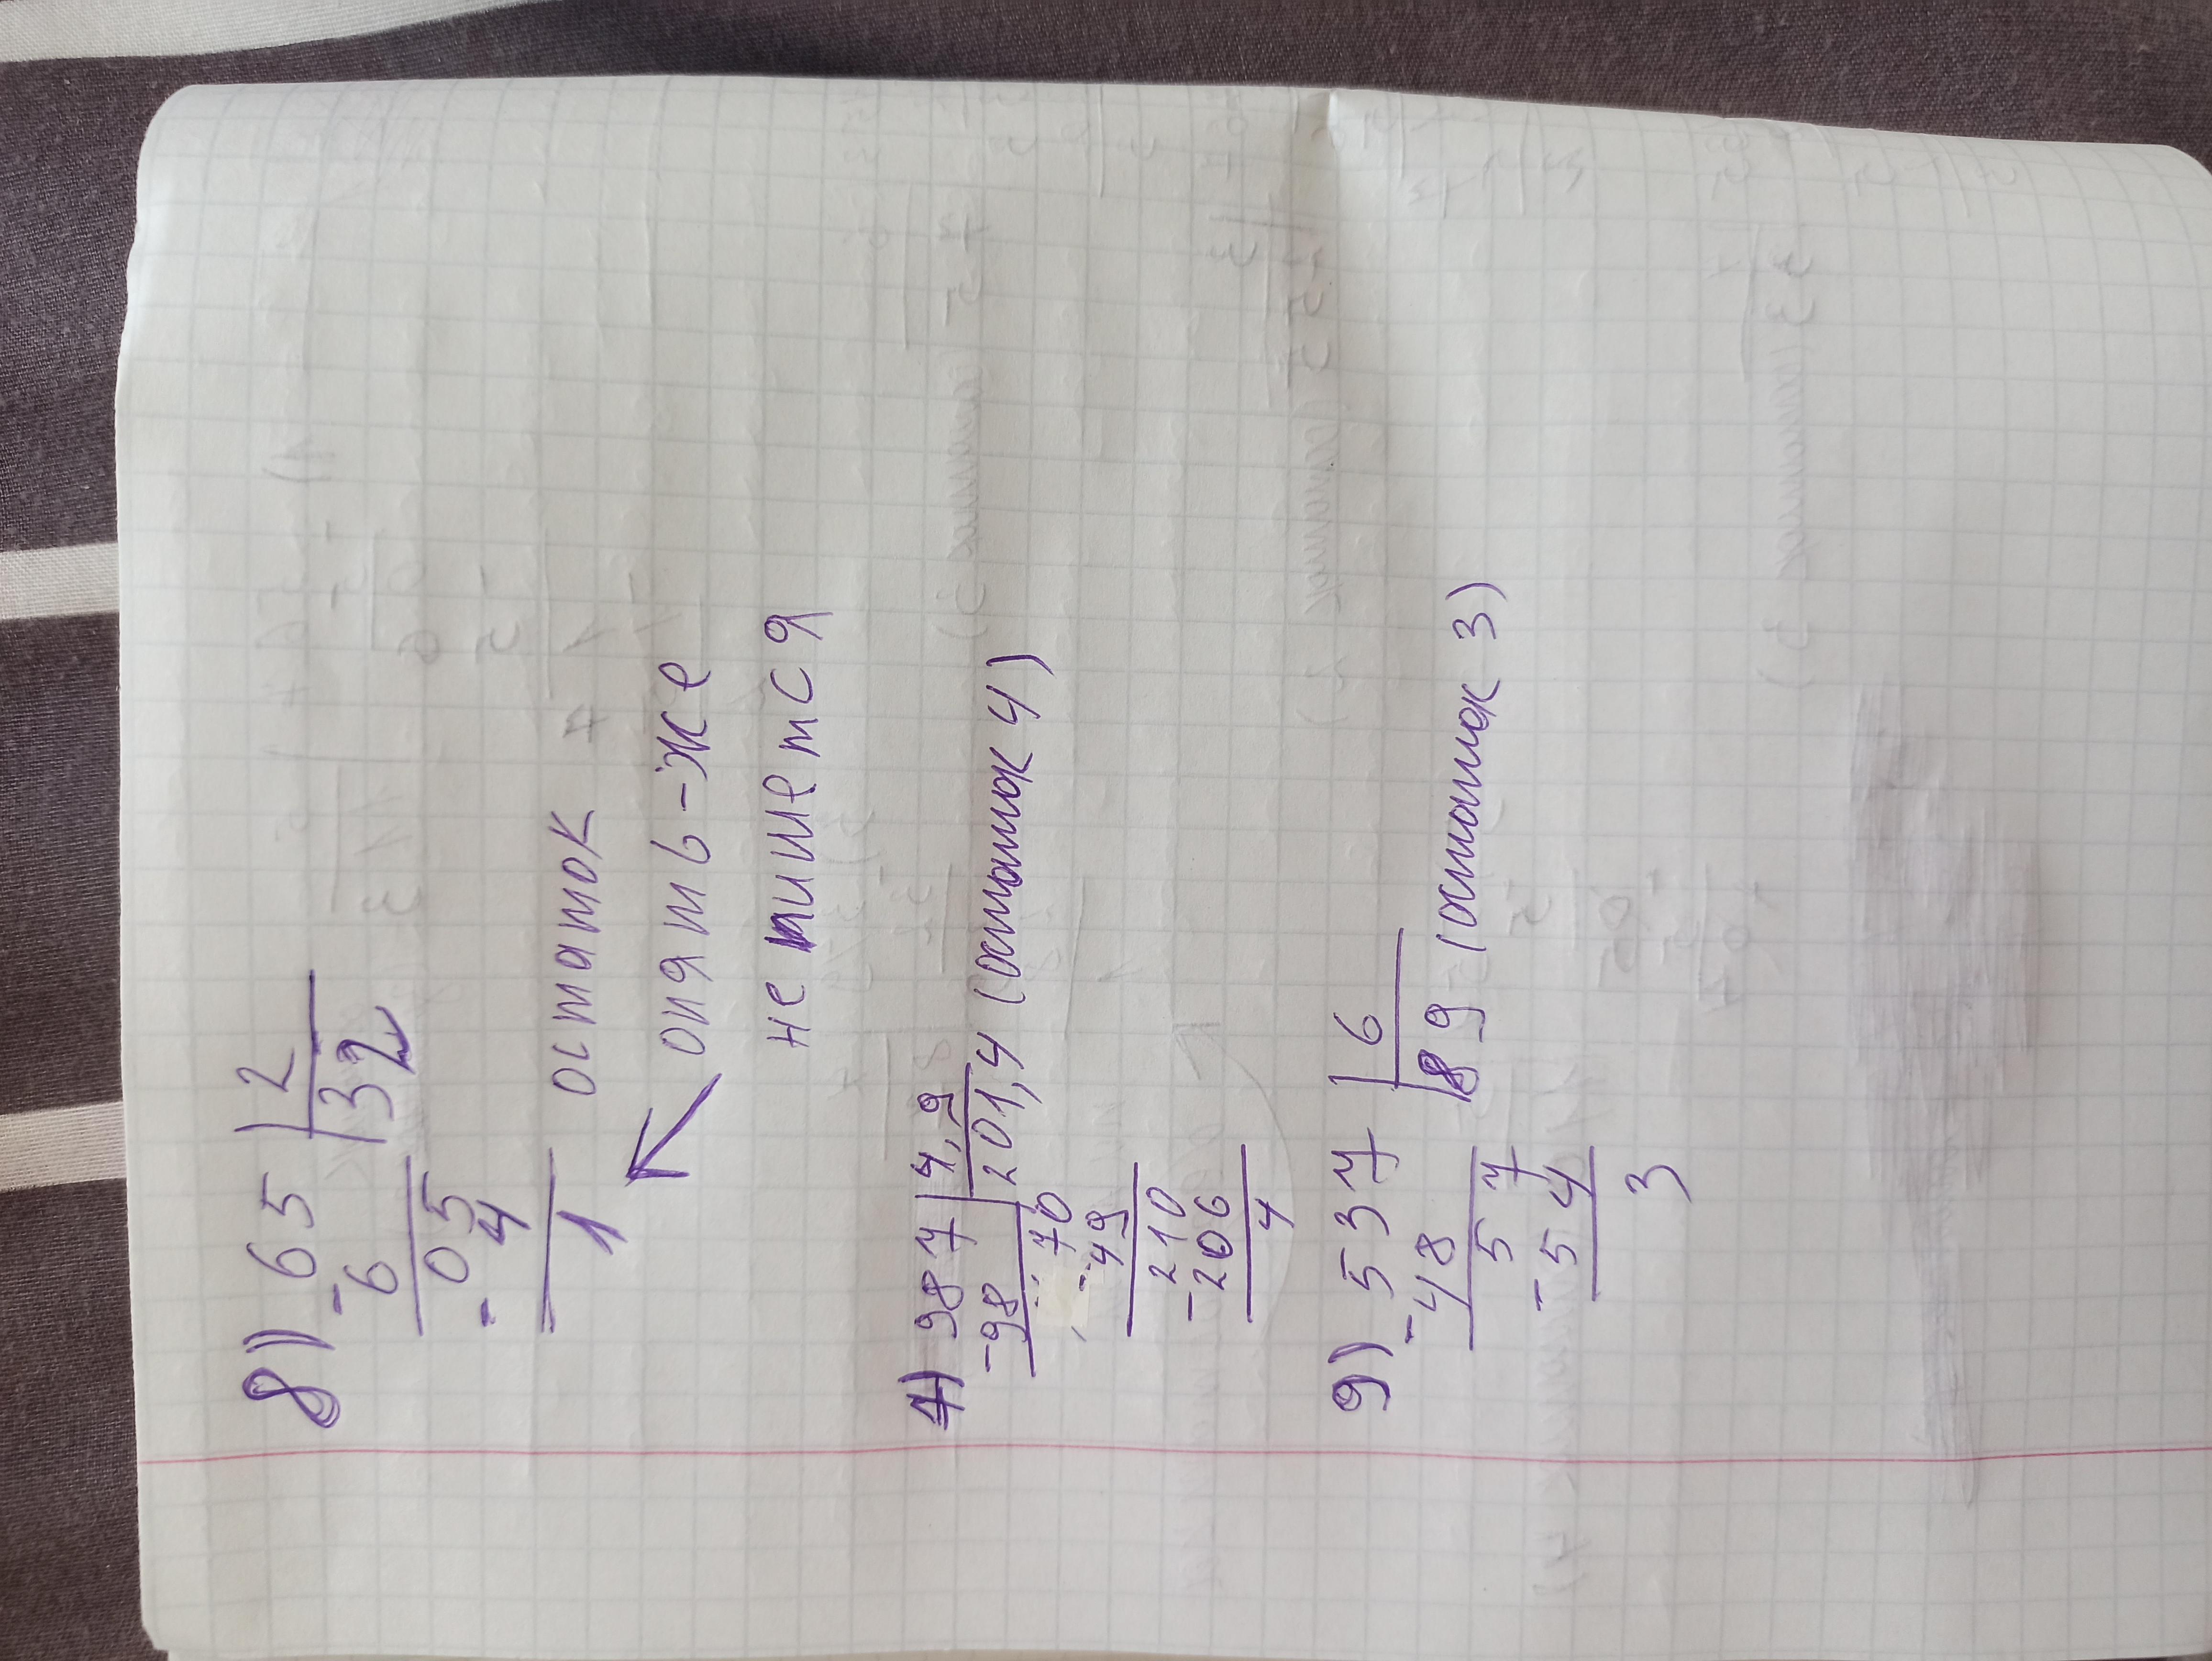 8) 65 | 2
- 6 | 32
05
- 4
1 остаток
опять-же
не пишется
4) 987 | 4,9
- 98 | 201,4 (остаток 4)
70
- 49
210
- 206
4
9) 537 | 6
- 48 | 89 (остаток 3)
57
- 54
3